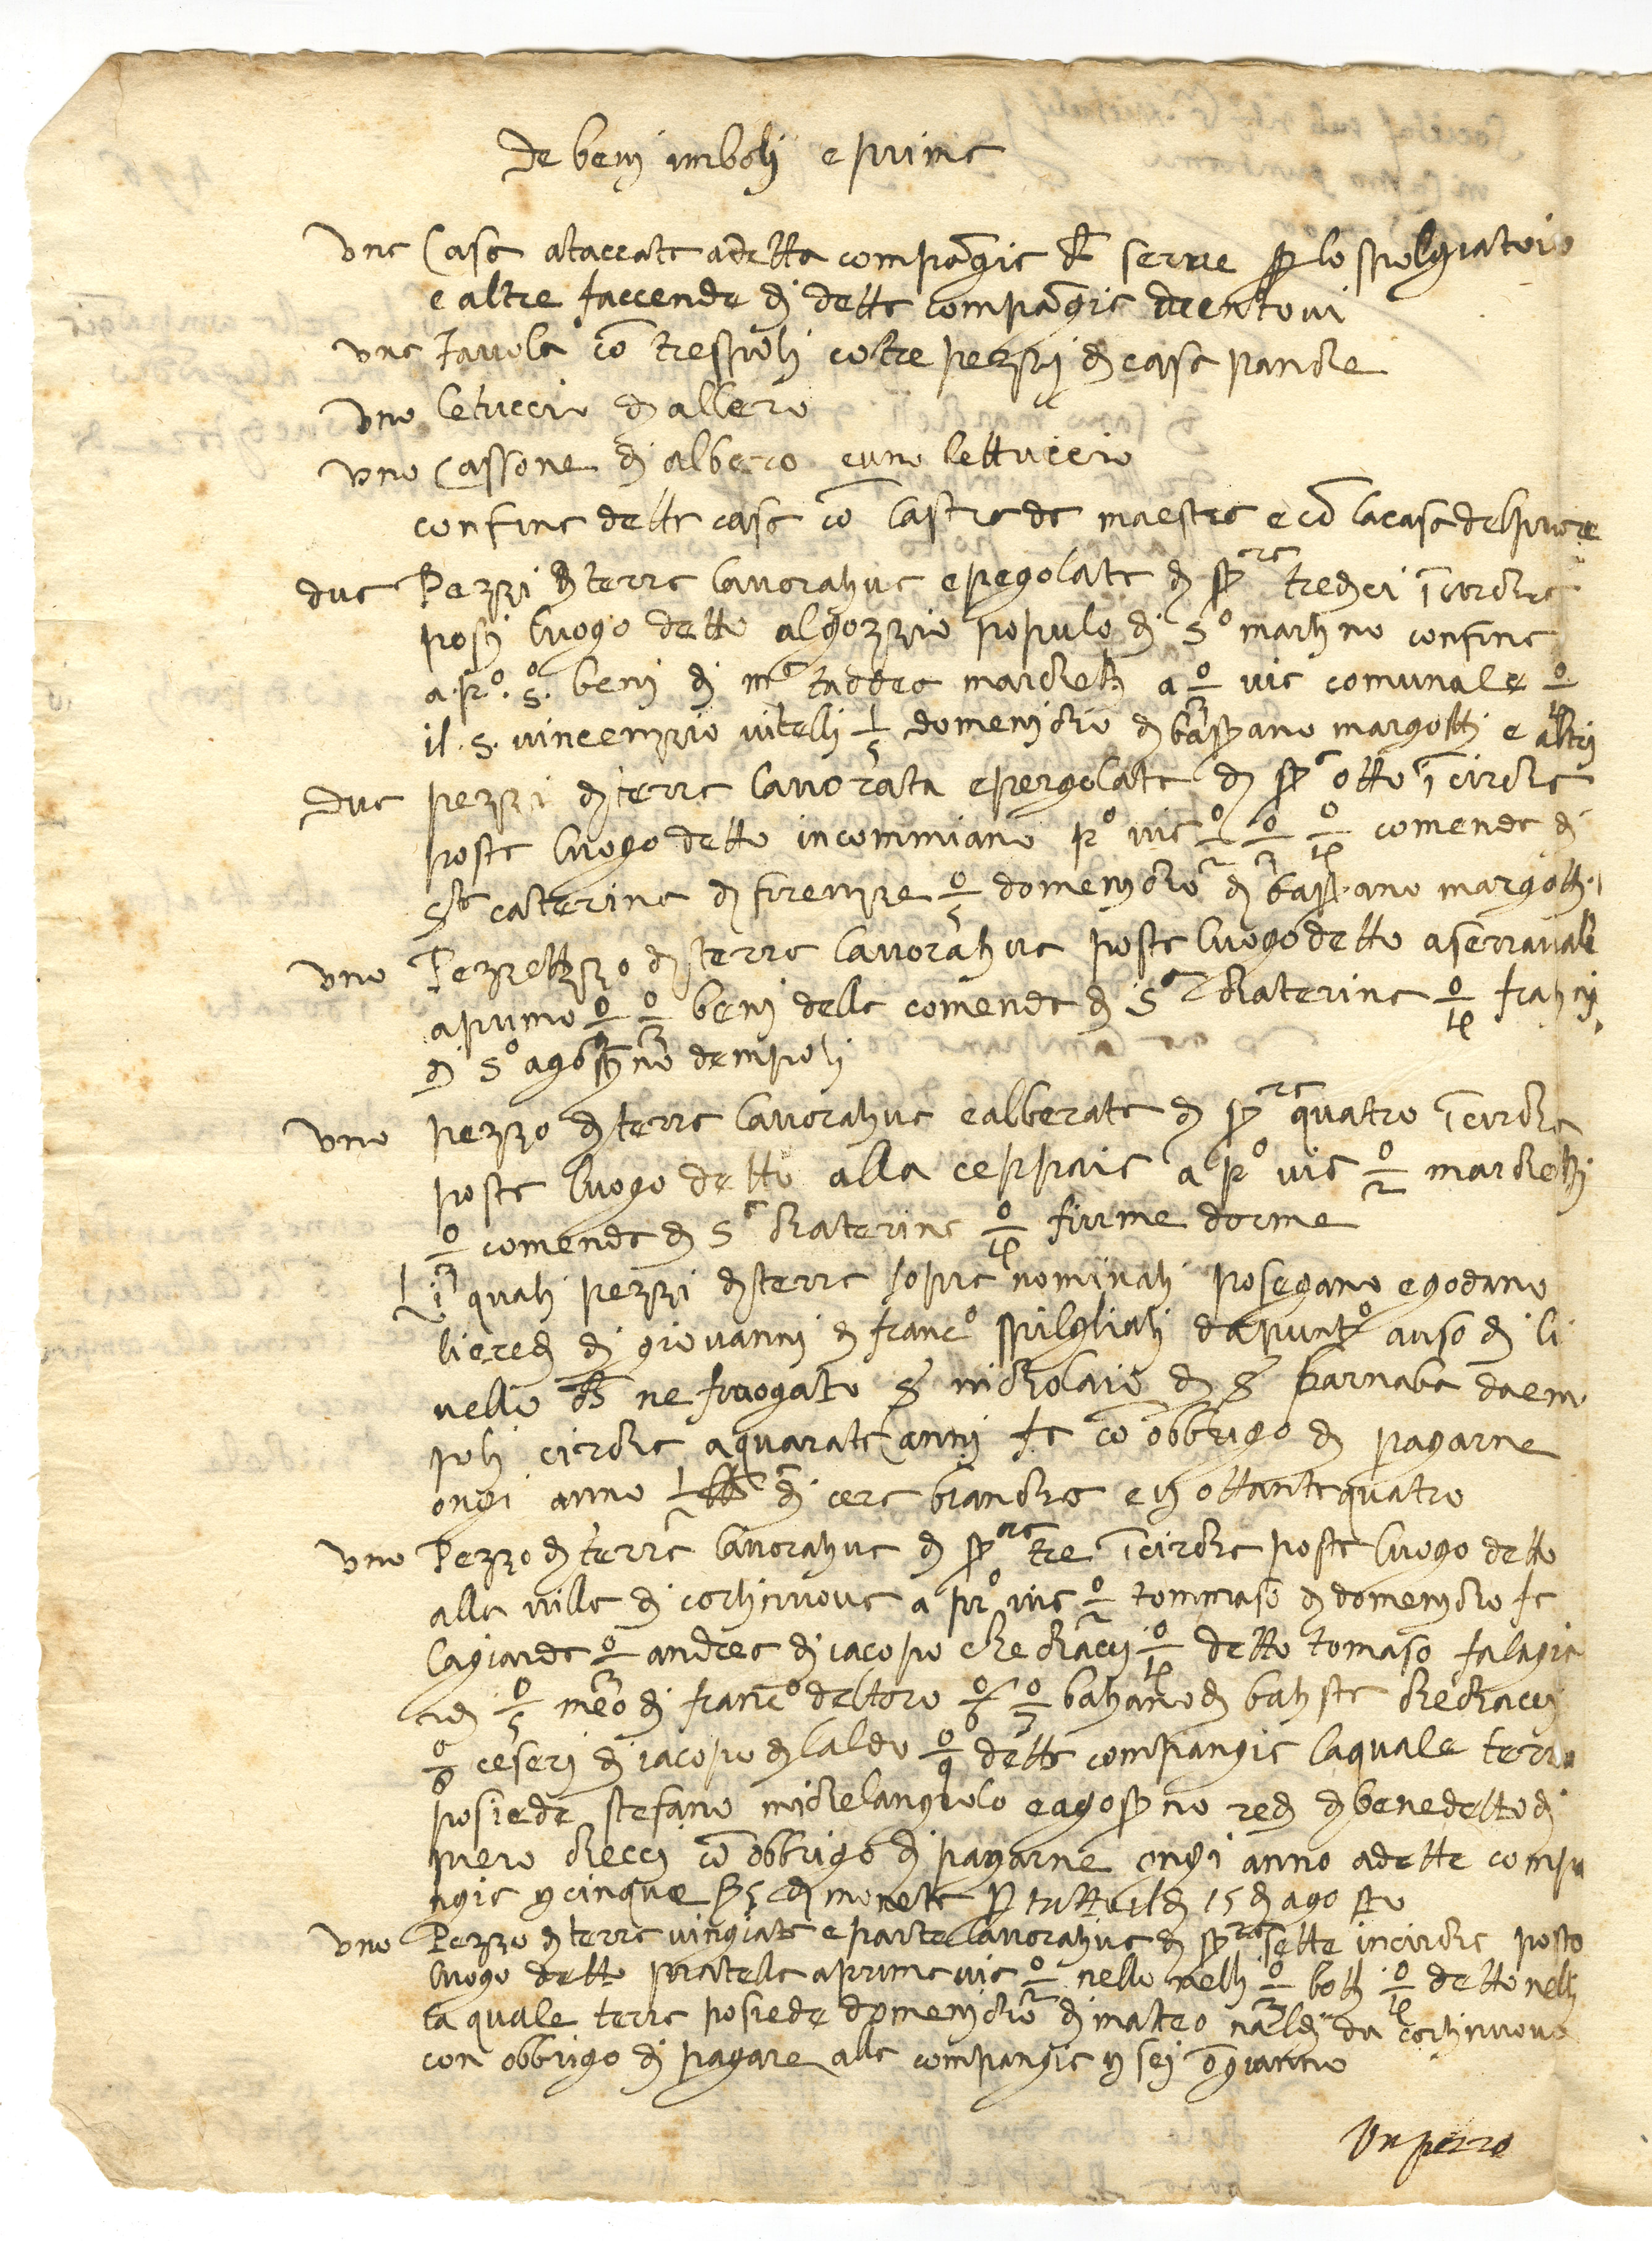 de benj imbolj e prima
una Casa ataccata a detta compa͠gia ch͠ serve p͠ lo spolgiatoio
e altre faccende dj detta compa͠gia drentovi
una tavola cō trespolj cō tre pezzj dj casa panche
uno letuccio dj albero
uno cassone dj albero e uno lettuccio
confina detta casa cō la strada maestra e cō la casa del priore
dua Pezzi dj terra lavorativa e pegolata dj st^ra tredicj ī circha
postj luogo detto al gozzio populo dj S^o martino confina
a pr^o. s. benj dj m^o taddeo marchettj a 2/o via comunale 3/o
il s. vincenzio vitellj 1/5 domenicho dj bastiano margottj e altrj
dua pezzi dj terra lavorata e pergolata dj st^a otto ī circha
posta luogo detto in commiano p^o via o/2 o/3 o/4 comenda dj
s^ta caterina dj firenze o/5 domenicho dj bast.ano margottj.
uno Pezzettzzo dj terra lavorativa posta luogo detto a serravale
a primo o/2 o/3 benj della comenda dj S^ta Chaterina o/4 fratj cij
dj S^o agostino dempolj
uno pezzo dj terra lavorativa e alberata dj st^ra quatro ī circha
posta luogo detto alla ceppaia a p^o via o/2 marchettj
o/3 comenda dj S^a chaterina o/4 fiume dorme
Li qualj pezzi dj terra sopra nominatj posegano e godano
li eredj dj giovannj dj franc^o spilgliatj dapunt^o a uso dj li
vello ch͠ ne fu rogato S nicholaio dj S barnaba da em
polj circha a quarata annj fa cō obbrigo dj pagarne
ongi anno dj cera biancha e lj ottanta quatro
uno Pezzo dj terra lavorativa dj st^ra tre ī circha posta luogo detto
alla villa dj cortinuova a pr^o via o/2 tommaso dj domenicho fa
lagiarda o/3 andrea dj iacopo chechaccj o/4 detto tomaso falagia
rdj o/5 meo dj franc^o del toro o/6 o/7 batiano dj batista chechaccj
o/8 ceserj dj iacopo dj baldo o/9 detta compangia la quale terra
posiede stefano michelangiolo e agostino redj dj benedetto dj
piero checcj cō obbrigo dj pagarne ongi anno a detta compa
ngia lj cinque s 5 dj moneta p͠ tutto il dj 15 dj agosto
uno Pezzo dj terra vingiata e parte lavorativa dj st^ra sette in circha posto
luogo detto pratella a prima via o/2 nello nellj o/3 bottj o/4 detto nellj
la quale terra posiede domenicho dj matteo naldj da cortinuova
con obbrigo dj pagare alla compangia lj sej ōgianno
Un pezzo